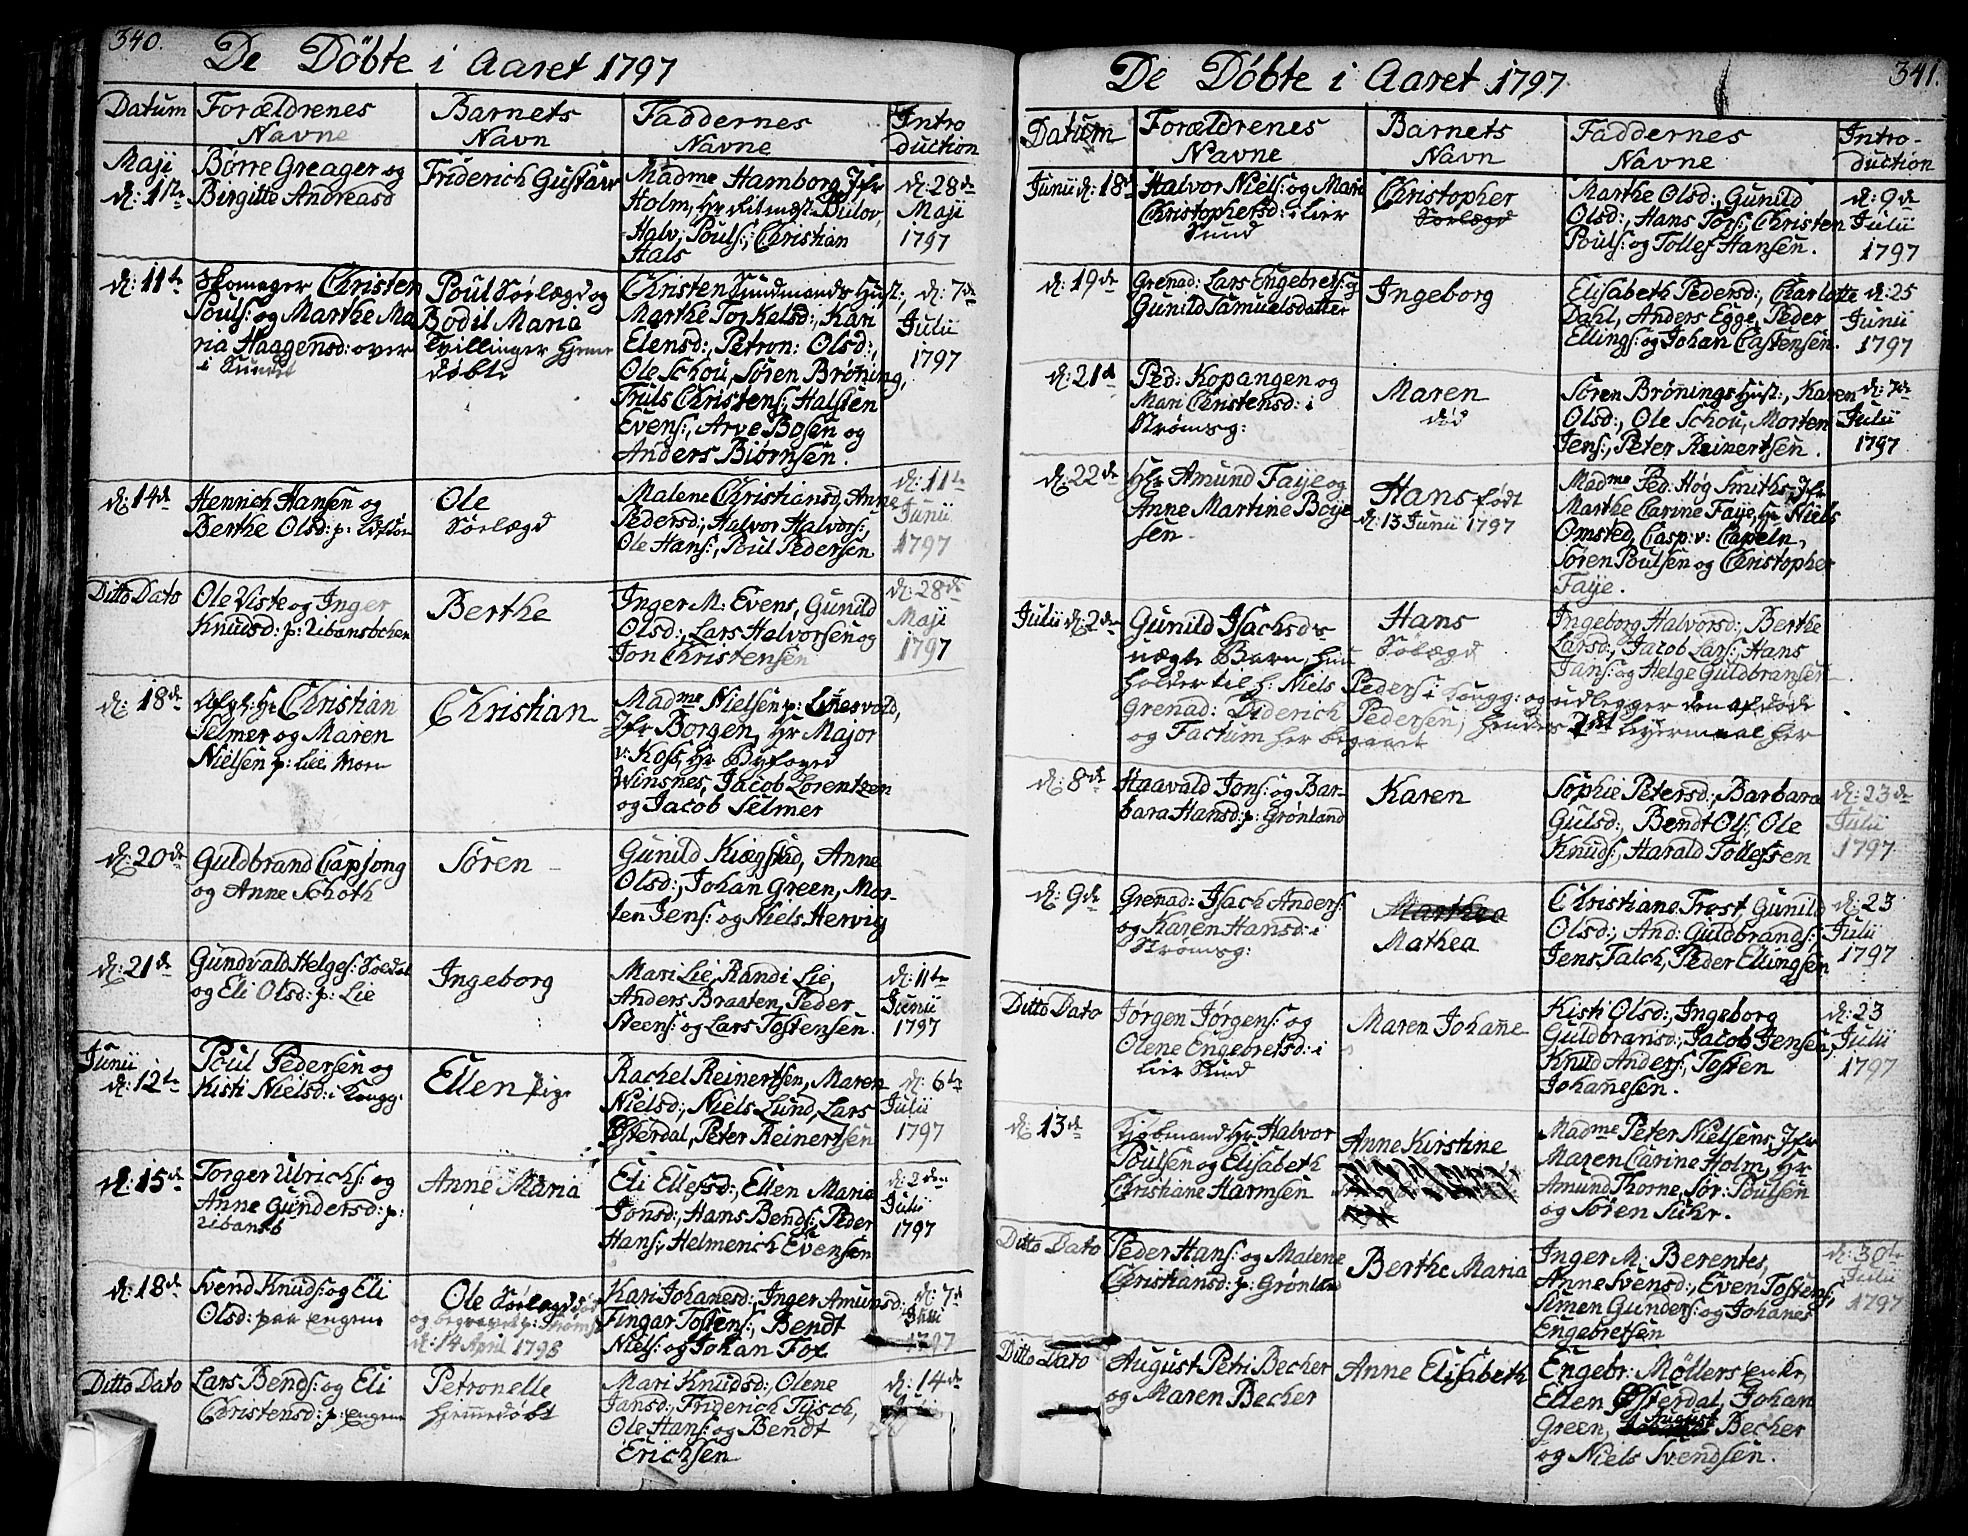 340.
De Döbte i Aaret 1797
Datum
Forældrenes
Navne
Barnets
Navn
Faddernes
Navne
Intro
duction
Maji
d: 1ste
Börre Greager og
Birgitte Andreasd
Friderich Gustav
Madme Hamborg, Jfr
Holm, Hr Bülov,
Halv. Pouls:, Christian
Hals
d: 28de
Maji
1797
d: 11te
Skomager Christen
Pouls: og Marthe Ma
ria Haagensd: over
i Sundet
Poul Sørlægd og
Bodil Maria
Tvillinger hjemme
döbte
Christen Sundmands Hust:,
Marthe Torkelsd:, Kari
Elensd:, Petron: Olsd:,
Ole Schou, Sören Bröning,
Truls Christens:, Halsten
Evens:, Arve Bosen og
Anders Biörnsen.
d: 7de
Julii
1797
d: 14de
Henrich Hansen og
Berthe Olsd: p:
Ole
Sørlægd
Malene Christiansd, Anne
Pedersd:, Halvor Halvors:,
Ole Hans:, Poul Pedersen
d: 11te
Junii
1797
Ditto Dato
Ole Viste og Inger
Knudsd: p:
Berthe
Inger M: Evens, Gunild
Olsd:, Lars Halvorsen og
Jon Christensen
d: 28de
Maji
1797
d: 18de
Hr Christian
Selmer og Maren
Nielsen p: Lie Moen
Christian
Madme Nielsen p: Linesvold,
Jfr Borgen, Hr Major
v: Koss, Hr Byfoged
Winsnes, Jacob Lorentzen
og Jacob Selmer
d: 20de
Guldbrand Capjong
og Anne Schoth
Sören
Gunild Kiægstad, Anne
Olsd:, Johan Green, Mor-
ten Jens: og Niels Hervig
d: 21de
Gundvald Helges: Soldat
og Eli Olsd: p: Lie
Ingeborg
Mari Lie, Randi Lie,
Anders Braaten, Peder
Steens: og Lars Tostensen.
d: 11te
Junii
1797
Junii
d: 12te
Poul Pedersen og
Kisti Nielsd: i Tougg:
Ellen Pige
Rachel Reinertsen, Maren
Nielsd:, Niels Lund, Lars
Österdal, Peter Reinertsen
d: 6te
Julii
1797
d: 15de
Torger Ulrichs: og
Anne Gundersd: p:
Anne Maria
Eli Ellefsd:, Ellen Maria
Jonsd:, Hans Bends:, Peder
Hans:, Helmerich Evensen
d: 2den
Julii
1797
d: 18de
Svend Knuds: og Eli
Olsd: paa engene
Ole Sørlægd död
og begravet p: Strömsö
d: 14 April 1798
Kari Johanesd:, Inger Amundsd:
Fingar Tostens:, Bendt
Niels: og Johan Fox
d: 7de
Julii
1797
Ditto Dato
Lars Bends: og Eli
Christensd: p: engene
Petronelle
hjemmedöbt
Mari Knudsd:, Olene
Jansd:, Friderich Tysch,
Ole Hans: og Bendt
Erichsen
d: 14de
341.
De Döbte i Aaret 1797
Datum
Forældrenes
Navne
Barnets
Navn
Faddernes
Navne
Intro-
duction
Junii d: 18de
Halvor Niels: og Mari
Christophersd: i Lier
Sund
Christopher
Sørlægd
Marthe Olsd:, Gunild
Olsd:, Hans Tors:, Christen
Pouls: og Tollef Hansen.
d: 9de
Julii
1797
d: 19de
Grenad: Lars Engebrets: og
Gunild Samuelsdatter
Ingeborg
Elisabeth Pedersd:, Charlotte
Dahl, Anders Egge, Peder
Ellings: og Johan Castensen.
d: 25
Junii
1797
d: 21de
Ped: Kopangen og
Mari Christensd: i
Strömsg:
Maren
död
Sören Brönings Hust:, Karen
Olsd:, Ole Schou, Morten
Jens:, Peter Reinertsen.
d: 7de
Julii
1797
d: 22de
Hr Amund Faye og
Anne Martine Boye
sen.
Hans födt
d: 13 Junii 1797
Madme Ped: Hög Smiths, Jfr
Marthe Carine Faye, Hr Niels
Omsted, Casp: v: Capeln,
Sören Poulsen og Christopher
Faye.
Julii d: 2den
Gunild Isachsds
uægte Barn, hun
holder til h: Niels Peders: i Tougg: og udlegger den afdöde
Grenad: Diderich Pedersen, hendes 2det leyermaal her
og Factum her begaaet
Hans
Sølægd
Ingeborg Halvorsd:, Berthe
Larsd:, Jacob Lars:, Hans
Jans: og Helge Guldbransen.
d: 8de
Haavald Jons: og Bar-
bara Hansd: p: Grönland
Karen
Sophie Petersd:, Barbara
Gulsd:, Bendt Ols:, Ole
Knuds:, Harald Tollefsen
d: 23de
Julii
1797
d: 9de
Grenad: Isach Anders:
og Karen Hansd: i
Strömsg:
Marthea
Mathea
Christiane Trost, Gunild
Olsd:, And: Guldbrands:,
Jens Falch, Peder Ellingsen
d: 23
Julii
1797
Ditto Dato
Jörgen Jörgens: og
Olene Engebretsd: i
Lier Sund
Maren Johanne
Kisti Olsd:, Ingeborg
Guldbransd:, Jacob Jensen,
Knud Anders:, Tosten
Johannesen.
d: 23
Julii
1797
d: 13de
Kjöbmand Hr Halvor
Poulsen og Elisabeth
Christiane Harmsen
Anne Kirstine
Madme Peter Nielsens, Jfr
Maren Carine Holm, Hr
Amund Thorne, Sör: Poulsen
og Sören Suhr.
Ditto Dato
Peder Hans: og Malene
Christiansd: p: Grönland
Berthe Maria
Inger M: Berentes,
Anne Svensd:, Even Tostens:,
Simen Gunders: og Johanes
Engebretsen
d: 30te
Julii
1797
Ditto Dato
August Petri Becher
og Maren Becher
Anne Elisabeth
Engebr: Möllers Enke,
Ellen Österdal, Johan
Green, August Becher
og Niels Svendsen.